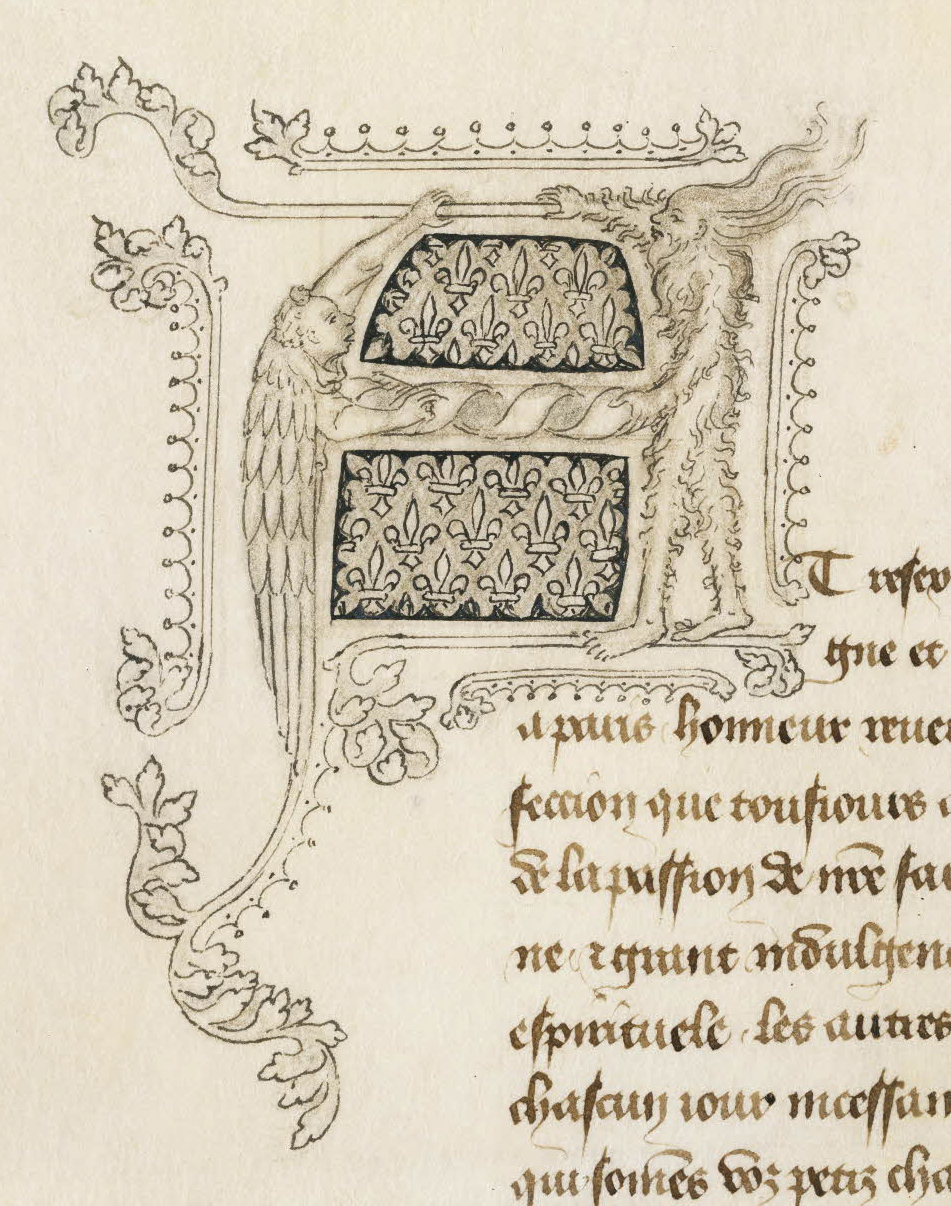 A
T resex
gne et
a paris honneur reue
feccion que tousiours
de la passion de nr̄e sa
ne ⁊ grant indulgen
espirituele les autres
chascun iour incessan
qui somēs voz petiz cha